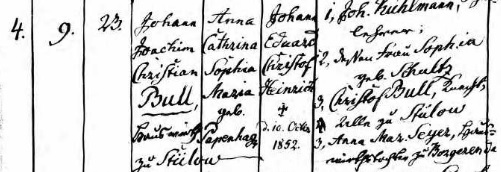 4. 9. 23. Johann Anna Johann 1, Joh. Kuhlmann,
Joachim Cathrina Eduard Lehrer;
Christian Sophia Christof 2, dessen Frau Sophia
Bull, Maria Heinrich geb. Schultz
geb. ✝ 3, Christof Bull, Knecht
Hauswirth Papenhagen d. 10. Octbr zu Stülow
zu Stülow 1852. 3, Anna Mar. Beyer, Haus-
wirthstochter zu Borgerende